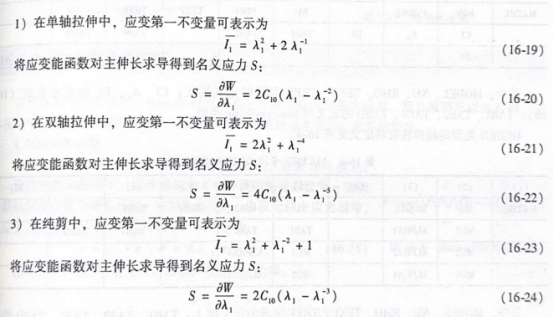 1）在单轴拉伸中，应变第一不变量可表示为
$\overline{I_1} = \lambda_1^2 + 2\lambda_1^{-1}$ (16-19)
将应变能函数对主伸长求导得到名义应力 S：
$S = \frac{\partial W}{\partial \lambda_1} = 2C_{10}(\lambda_1 - \lambda_1^{-2})$ (16-20)
2）在双轴拉伸中，应变第一不变量可表示为
$\overline{I_1} = 2\lambda_1^2 + \lambda_1^{-4}$ (16-21)
将应变能函数对主伸长求导得到名义应力 S：
$S = \frac{\partial W}{\partial \lambda_1} = 4C_{10}(\lambda_1 - \lambda_1^{-5})$ (16-22)
3）在纯剪中，应变第一不变量可表示为
$\overline{I_1} = \lambda_1^2 + \lambda_1^{-2} + 1$ (16-23)
将应变能函数对主伸长求导得到名义应力 S：
$S = \frac{\partial W}{\partial \lambda_1} = 2C_{10}(\lambda_1 - \lambda_1^{-3})$ (16-24)